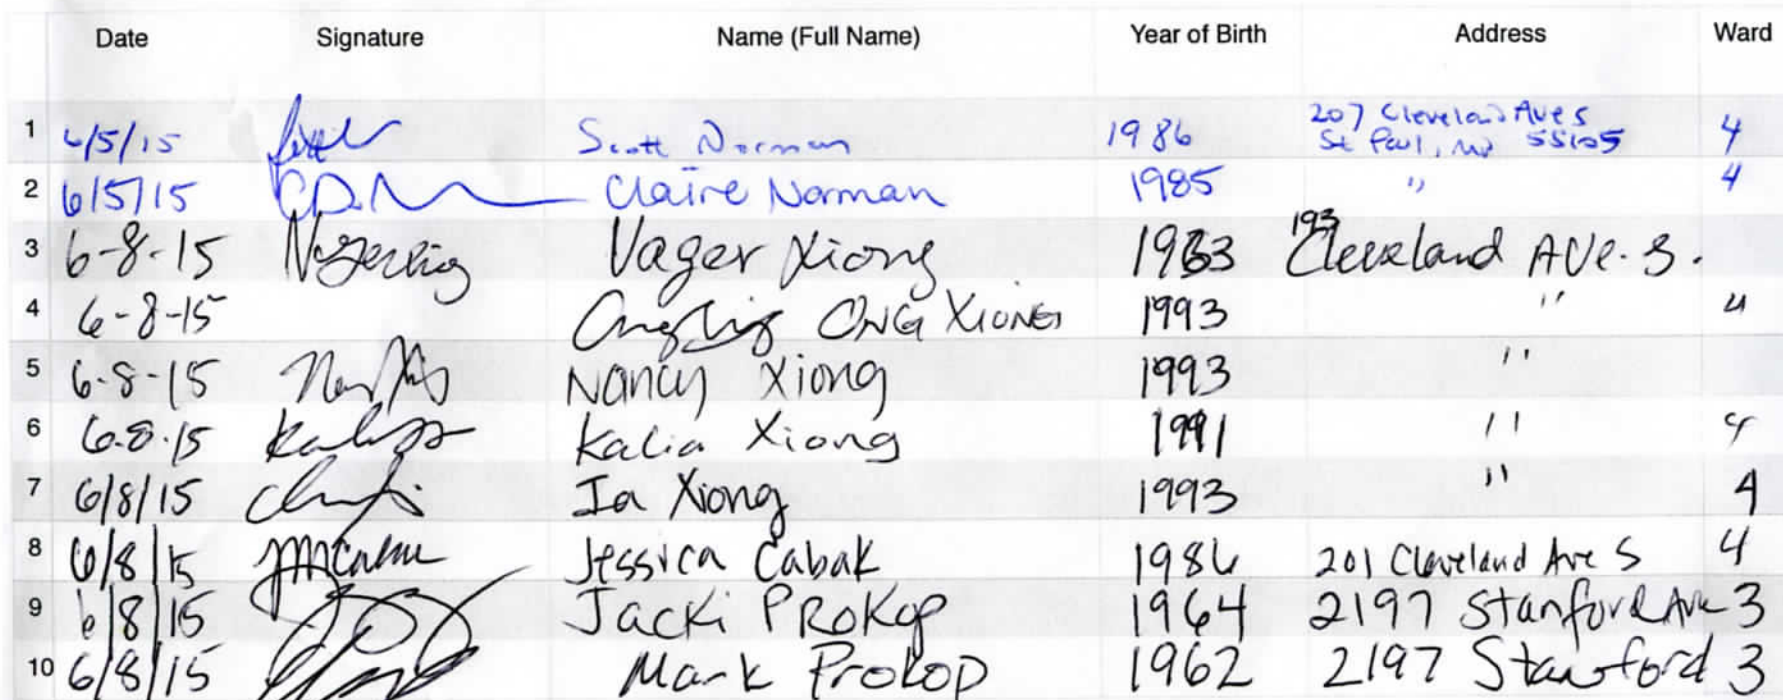 Date Signature Name (Full Name) Year of Birth Address Ward
1 6/5/15 Scott Norman 1986 207 Cleveland Ave S
St Paul, MN 55105 4
2 6/5/15 Claire Norman 1985 " 4
3 6-8-15 Vager Xiong 1963 193 Cleveland Ave. S.
4 6-8-15 ONG XIONG 1993 " 4
5 6-8-15 Nancy Xiong 1993 "
6 6.8.15 Kalia Xiong 1991 " 4
7 6/8/15 Ia Xiong 1993 " 4
8 6/8/15 Jessica Cabak 1986 201 Cleveland Ave S 4
9 6/8/15 Jacki Prokop 1964 2197 Stanford Ave 3
10 6/8/15 Mark Prokop 1962 2197 Stanford 3